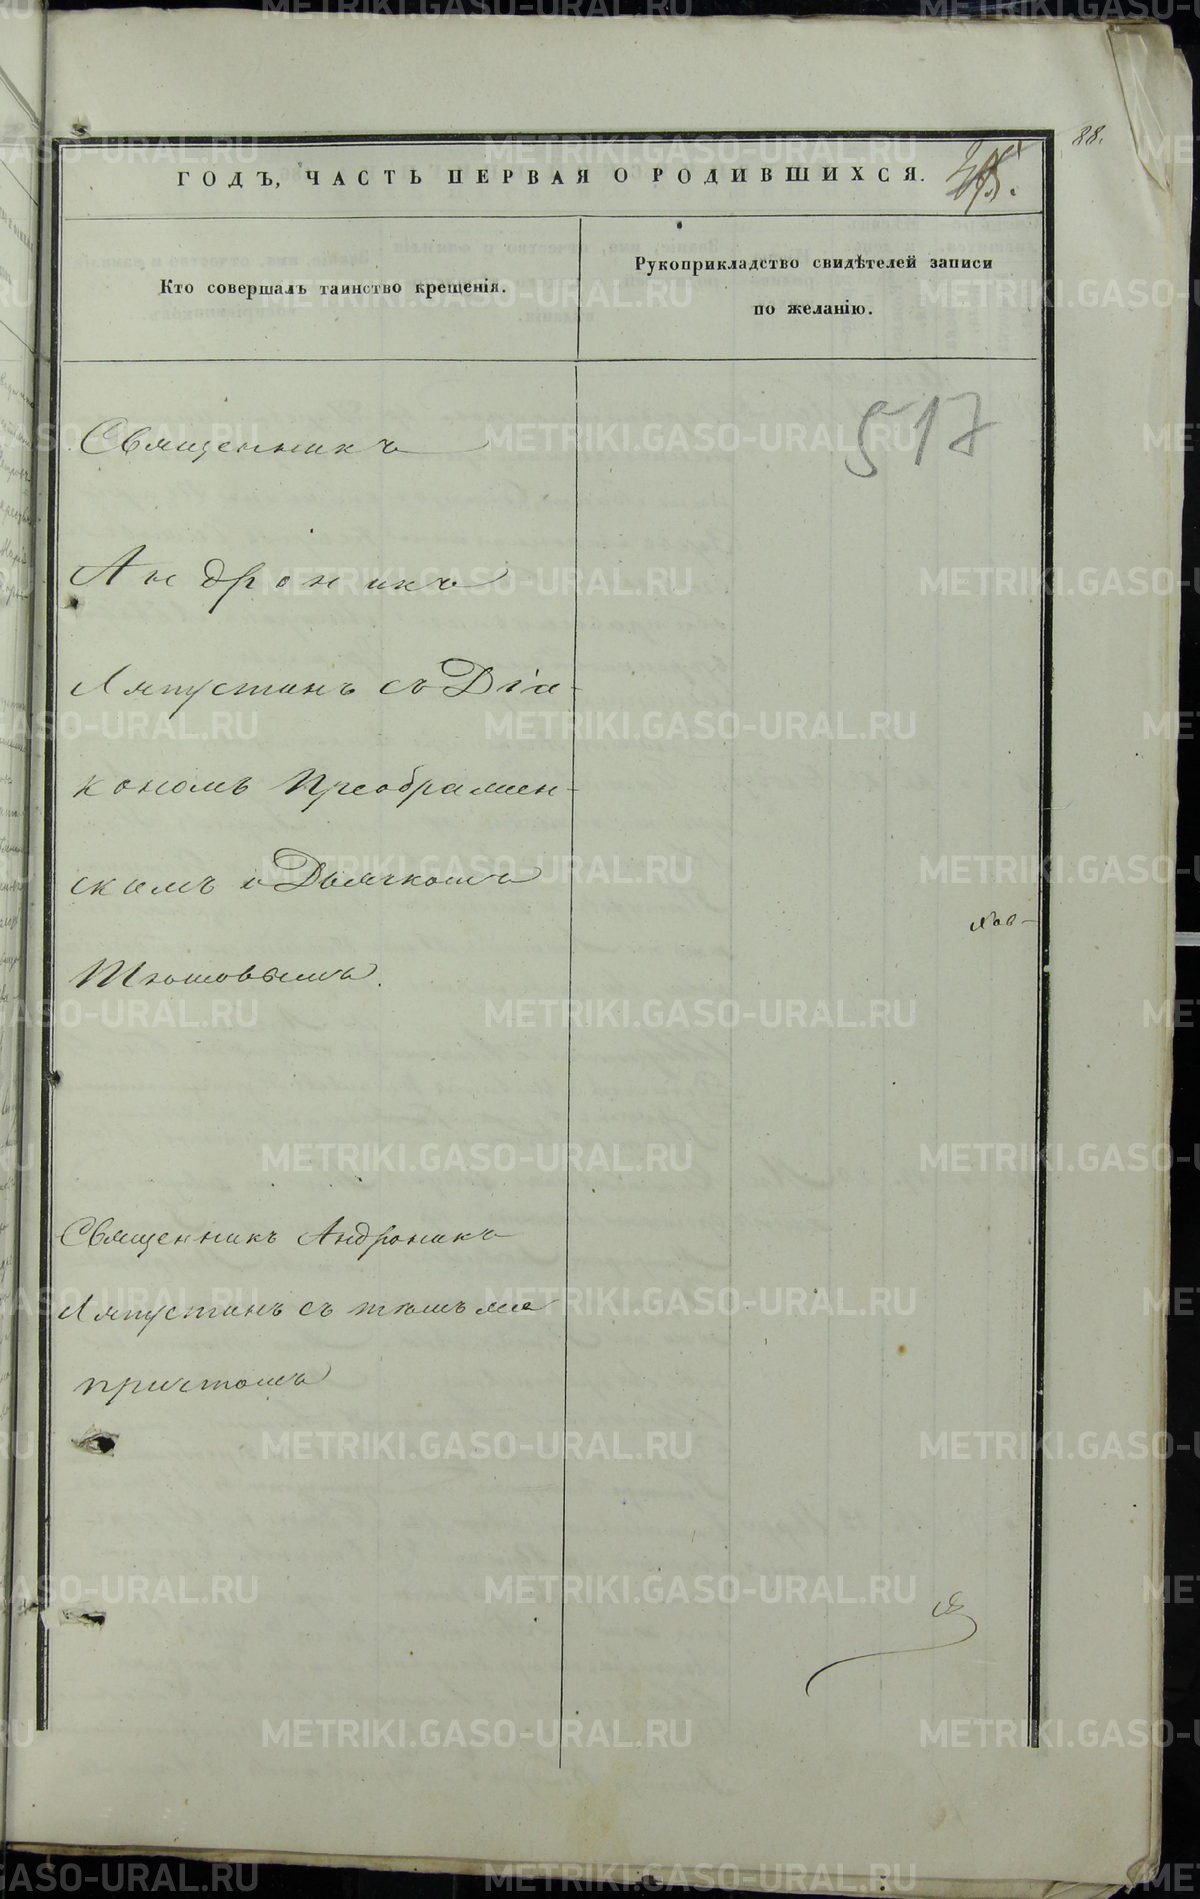 88.
ГОДЪ, ЧАСТЬ ПЕРВАЯ О РОДИВШИХСЯ.
Кто совершалъ таинство крещенія.
Рукоприкладство свидѣтелей записи
по желанію.
517
Священникъ
Андроникъ
Ляпустинъ съ Діа-
кономъ Преображен-
скимъ и Дьячкомъ
Тюшовымъ.
Священникъ Андроникъ
Ляпустинъ съ тѣмъ же
причтомъ
METRIKI.GASO-URAL.RU